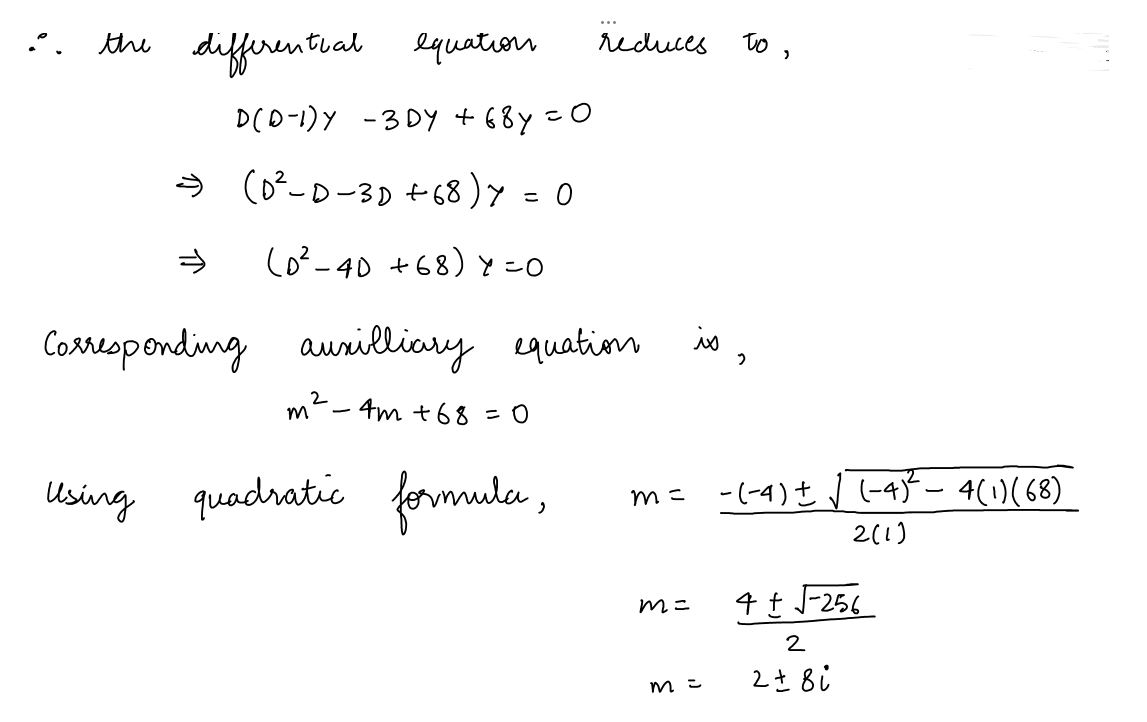 ∴ the differential equation reduces to,
D(D-1)Y - 3DY + 68y = 0
⇒ (D² - D - 3D + 68)Y = 0
⇒ (D² - 4D + 68)Y = 0
Corresponding auxilliary equation is,
m² - 4m + 68 = 0
Using quadratic formula, m = -(-4) ± √(-4)² - 4(1)(68)
2(1)
m = 4 ± √-256
2
m = 2 ± 8i